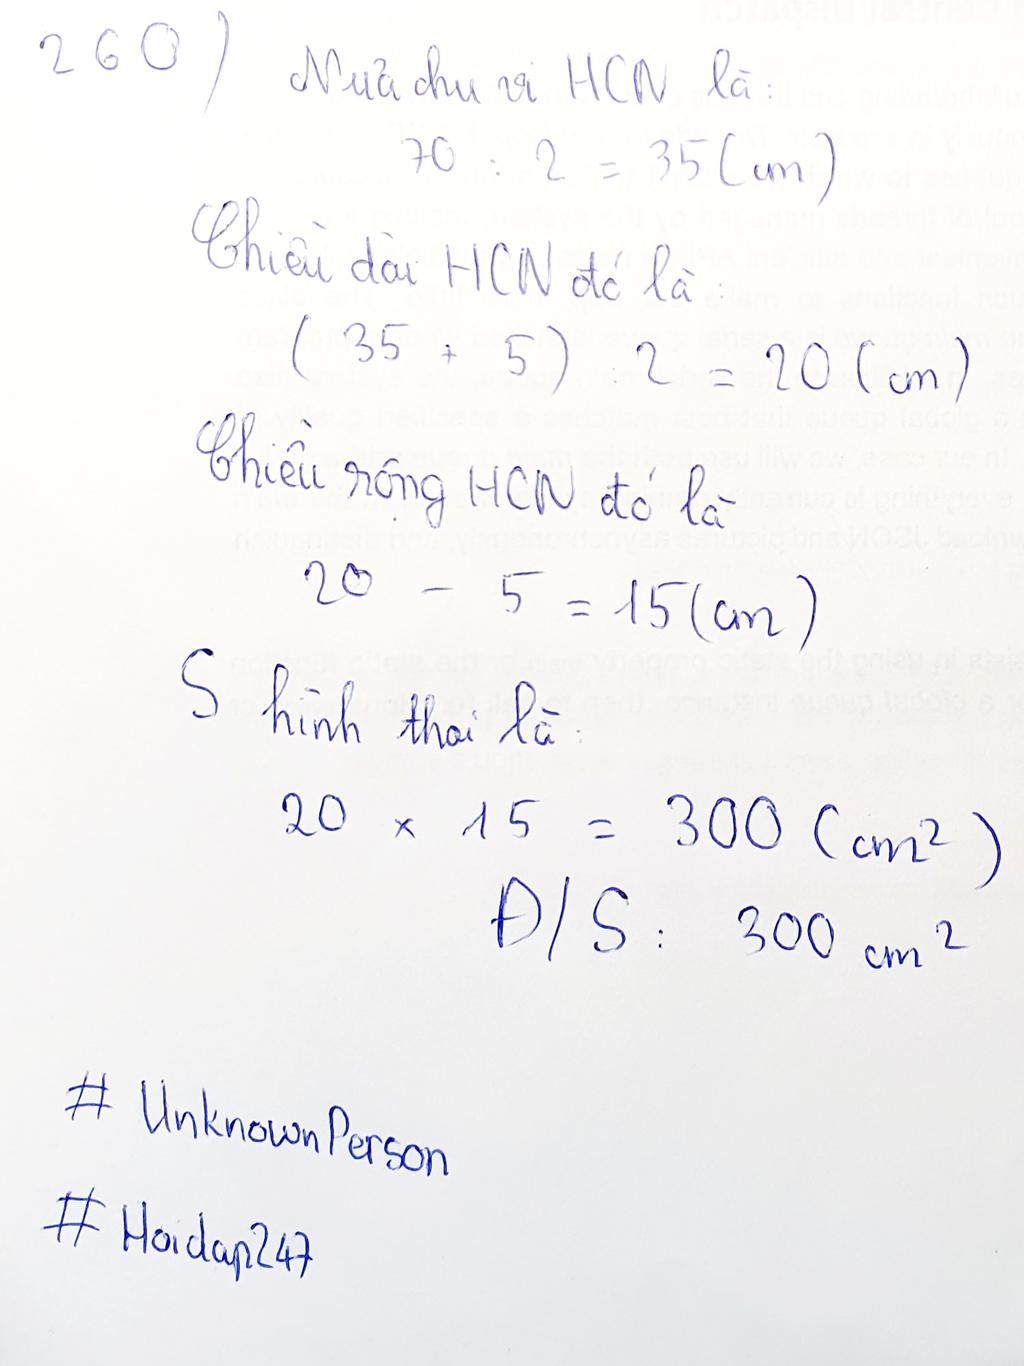 260)
Nửa chu vi HCN là:
70 : 2 = 35 (cm)
Chiều dài HCN đó là:
( 35 + 5 ) 2 = 20 (cm)
Chiều rộng HCN đó là
20 - 5 = 15 (cm)
S hình thoi là:
20 × 15 = 300 (cm²)
Đ/S: 300 cm²
# UnknownPerson
# Hoidap247